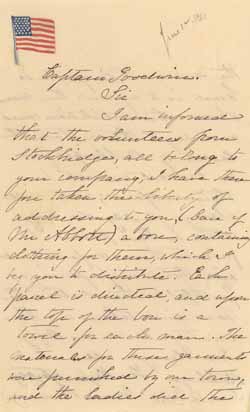 June 1st 1861
Captain Goodwin.
Sir
I am informed
that the volunteers from
Stockbridge, all belong to
your company; I have there
fore taken the liberty of
addressing to you, (care of
Mr Abbott) a box, containing
clothing for them, which I
beg you to distribute. Each
parcel is directed, and upon
the top of the box is a
towel for each man. The
materials for these garments
were furnished by our town,
and the ladies did the